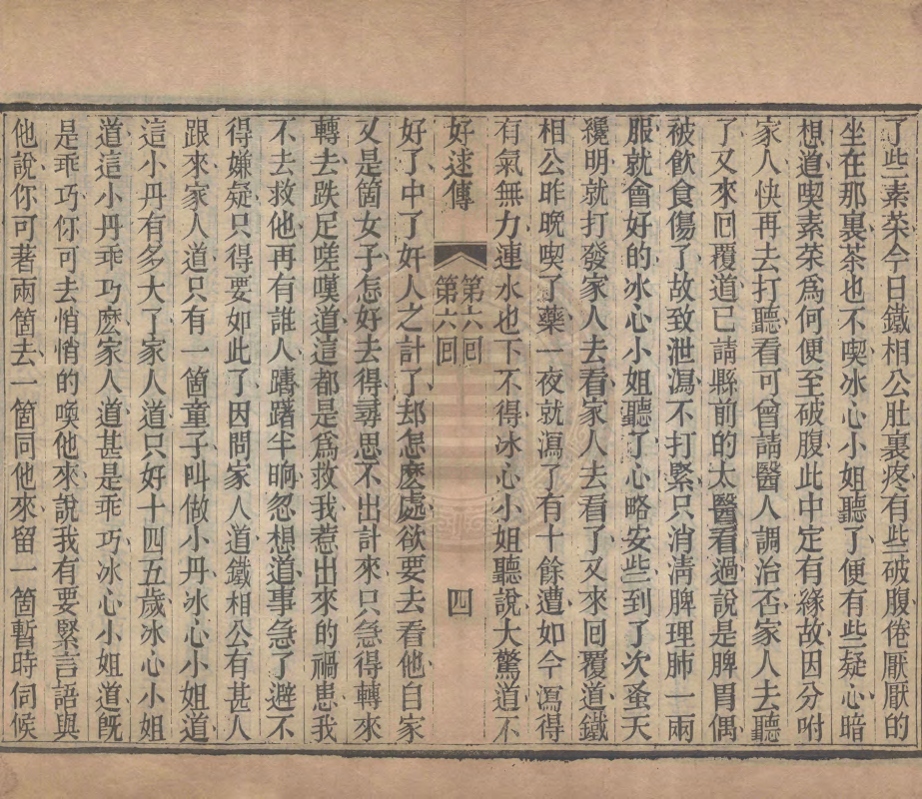 了些素菜今日鐵相公肚裏疼有些破腹倦厭厭的
坐在那裏茶也不喫冰心小姐聽了便有些疑心暗
想道喫素菜爲何便至破腹此中定有緣故因分咐
家人快再去打聽看可曾請醫人調治否家人去聽
了又來囘覆道已請縣前的太醫看過說是脾胃偶
被飲食傷了故致泄瀉不打緊只消清脾理肺一兩
服就會好的冰心小姐聽了心略安些到了次蚤天
纔明就打發家人去看家人去看了又來囘覆道鐵
相公昨晚喫了藥一夜就瀉了有十餘遭如今瀉得
有氣無力連水也下不得冰心小姐聽說大驚道不
好逑傳 第六囘 第六囘 四
好了中了奸人之計了却怎麽處欲要去看他自家
又是箇女子怎好去得尋思不出計來只急得轉來
轉去跌足嗟嘆道這都是爲救我惹出來的禍患我
不去救他再有誰人躊躇半晌忽想道事急了避不
得嫌疑只得要如此了因問家人道鐵相公有甚人
跟來家人道只有一箇童子叫做小丹冰心小姐道
這小丹有多大了家人道只好十四五歲冰心小姐
道這小丹乖巧麽家人道甚是乖巧冰心小姐道旣
是乖巧你可去悄悄的喚他來說我有要緊言語與
他說你可著兩箇去一箇同他來留一箇暫時伺候